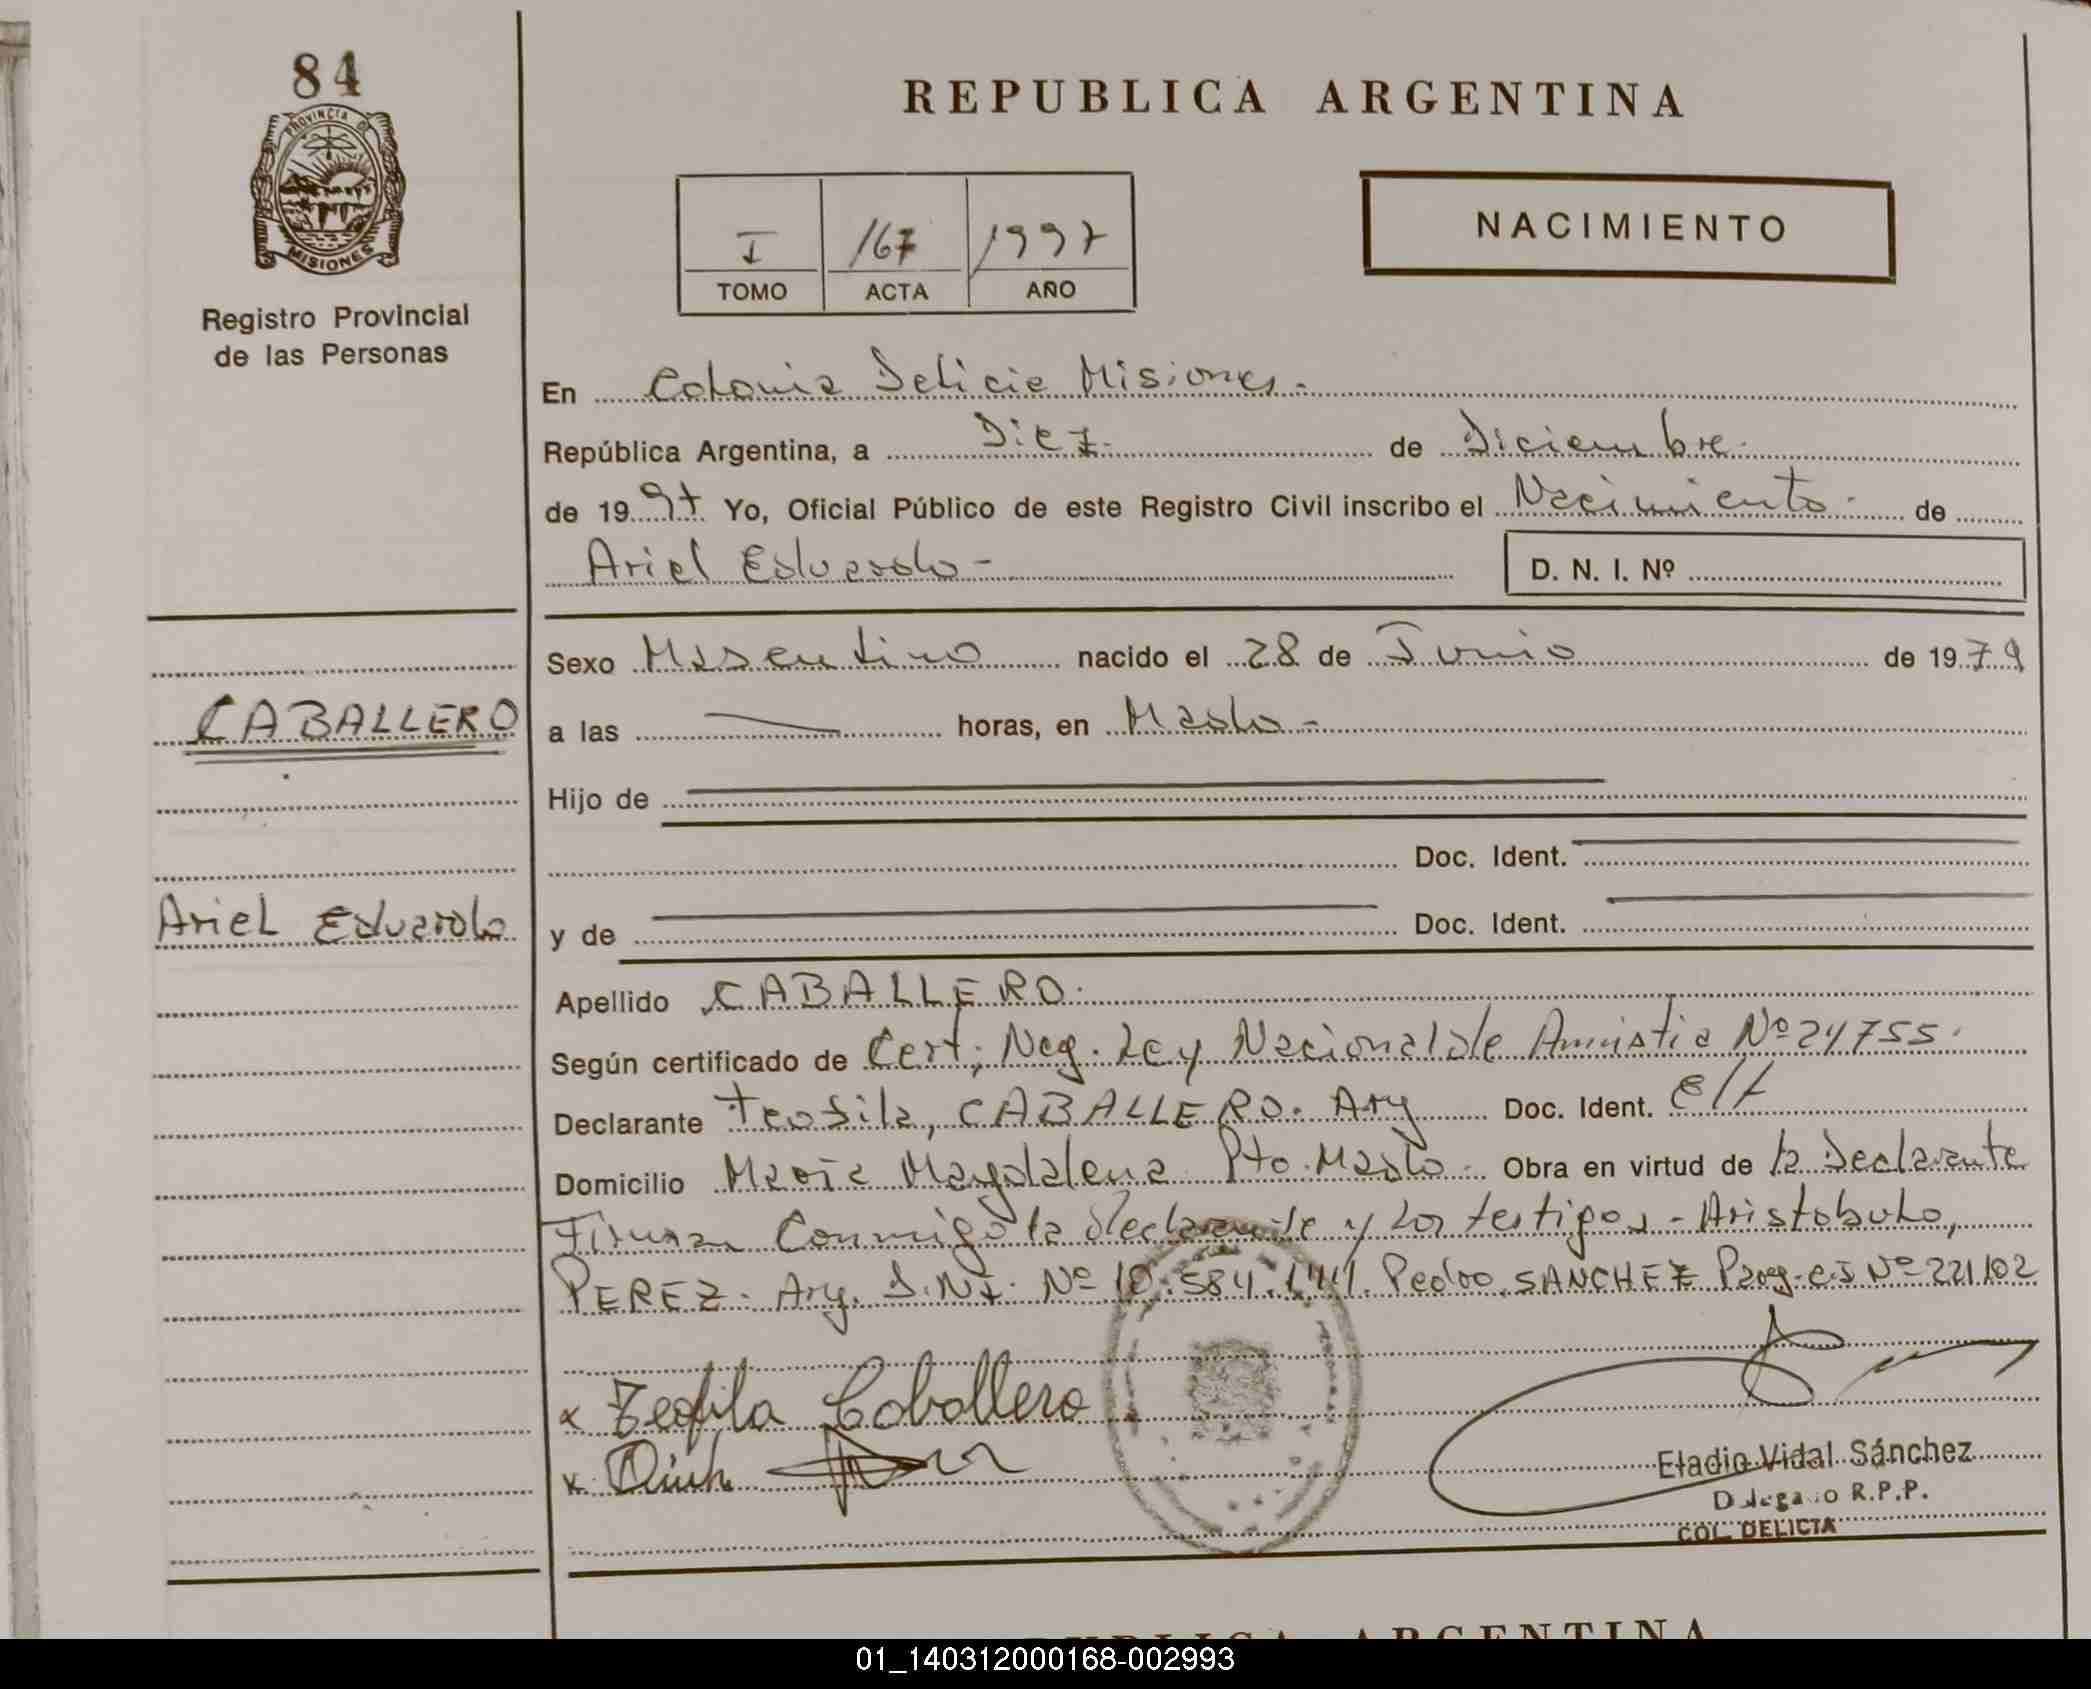 84
PROVINCIA DE
MISIONES
Registro Provincial
de las Personas
CABALLERO
Ariel Eduardo
REPUBLICA ARGENTINA
I 167 1997
TOMO ACTA AÑO
NACIMIENTO
En Colonia Delicia Misiones.-
República Argentina, a Diez.- de Diciembre.-
de 1997. Yo, Oficial Público de este Registro Civil inscribo el Nacimiento.- de
Ariel Eduardo-
D. N. I. Nº
Sexo Masculino nacido el 28 de Junio de 1979
a las horas, en Mado.-
Hijo de
Doc. Ident.
y de Doc. Ident.
Apellido CABALLERO.
Según certificado de Cert. Neg. Ley Nacional de Amnistia Nº 24755.
Declarante Teofila, CABALLERO. Arg Doc. Ident.
Domicilio Maria Magdalena Pto. Mado.- Obra en virtud de la Declarante
Firman Conmigo la declarante y los testigos - Aristobulo,
PEREZ. Arg. D.N.I. Nº 10.584.144. Pedro SANCHEZ Parag. C.I Nº 221102
x Teofila Caballero
x
Eladio Vidal Sánchez
Delegado R.P.P.
COL. DELICIA
REPUBLICA ARGENTINA
01_140312000168-002993